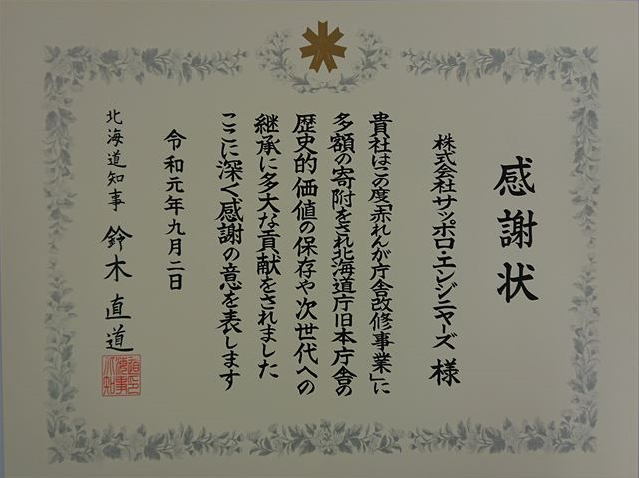 感謝状
株式会社サッポロ・エンジニヤーズ 様
貴社はこの度「赤れんが庁舎改修事業」に
多額の寄附をされ北海道庁旧本庁舎の
歴史的価値の保存や次世代への
継承に多大な貢献をされました
ここに深く感謝の意を表します
令和元年九月二日
北海道知事 鈴木直道